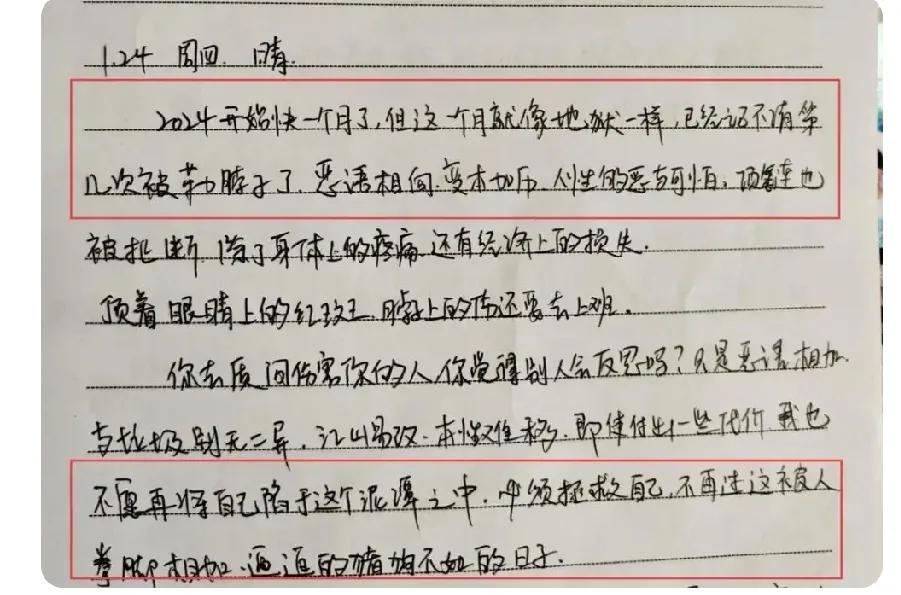 1.24 周四. 晴.
2024开始快一个月了,但这一个月就像地狱一样,已经记不清第
几次被勒脖子了.恶语相向.变本加厉.人性的恶与可怕,项链也
被扯断 除了身体上的疼痛 还有经济上的损失.
顶着眼睛上的红 脖子上的伤还要去上班.
你去质问伤害你的人,你觉得别人会反思吗?只是恶语相加.
与垃圾别无二异.江山易改.本性难移.即使付出一些代价 我也
不愿再将自己陷于这个泥潭之中.必须拯救自己,不再过这被人
拳脚相加.逼迫的猪狗不如的日子.